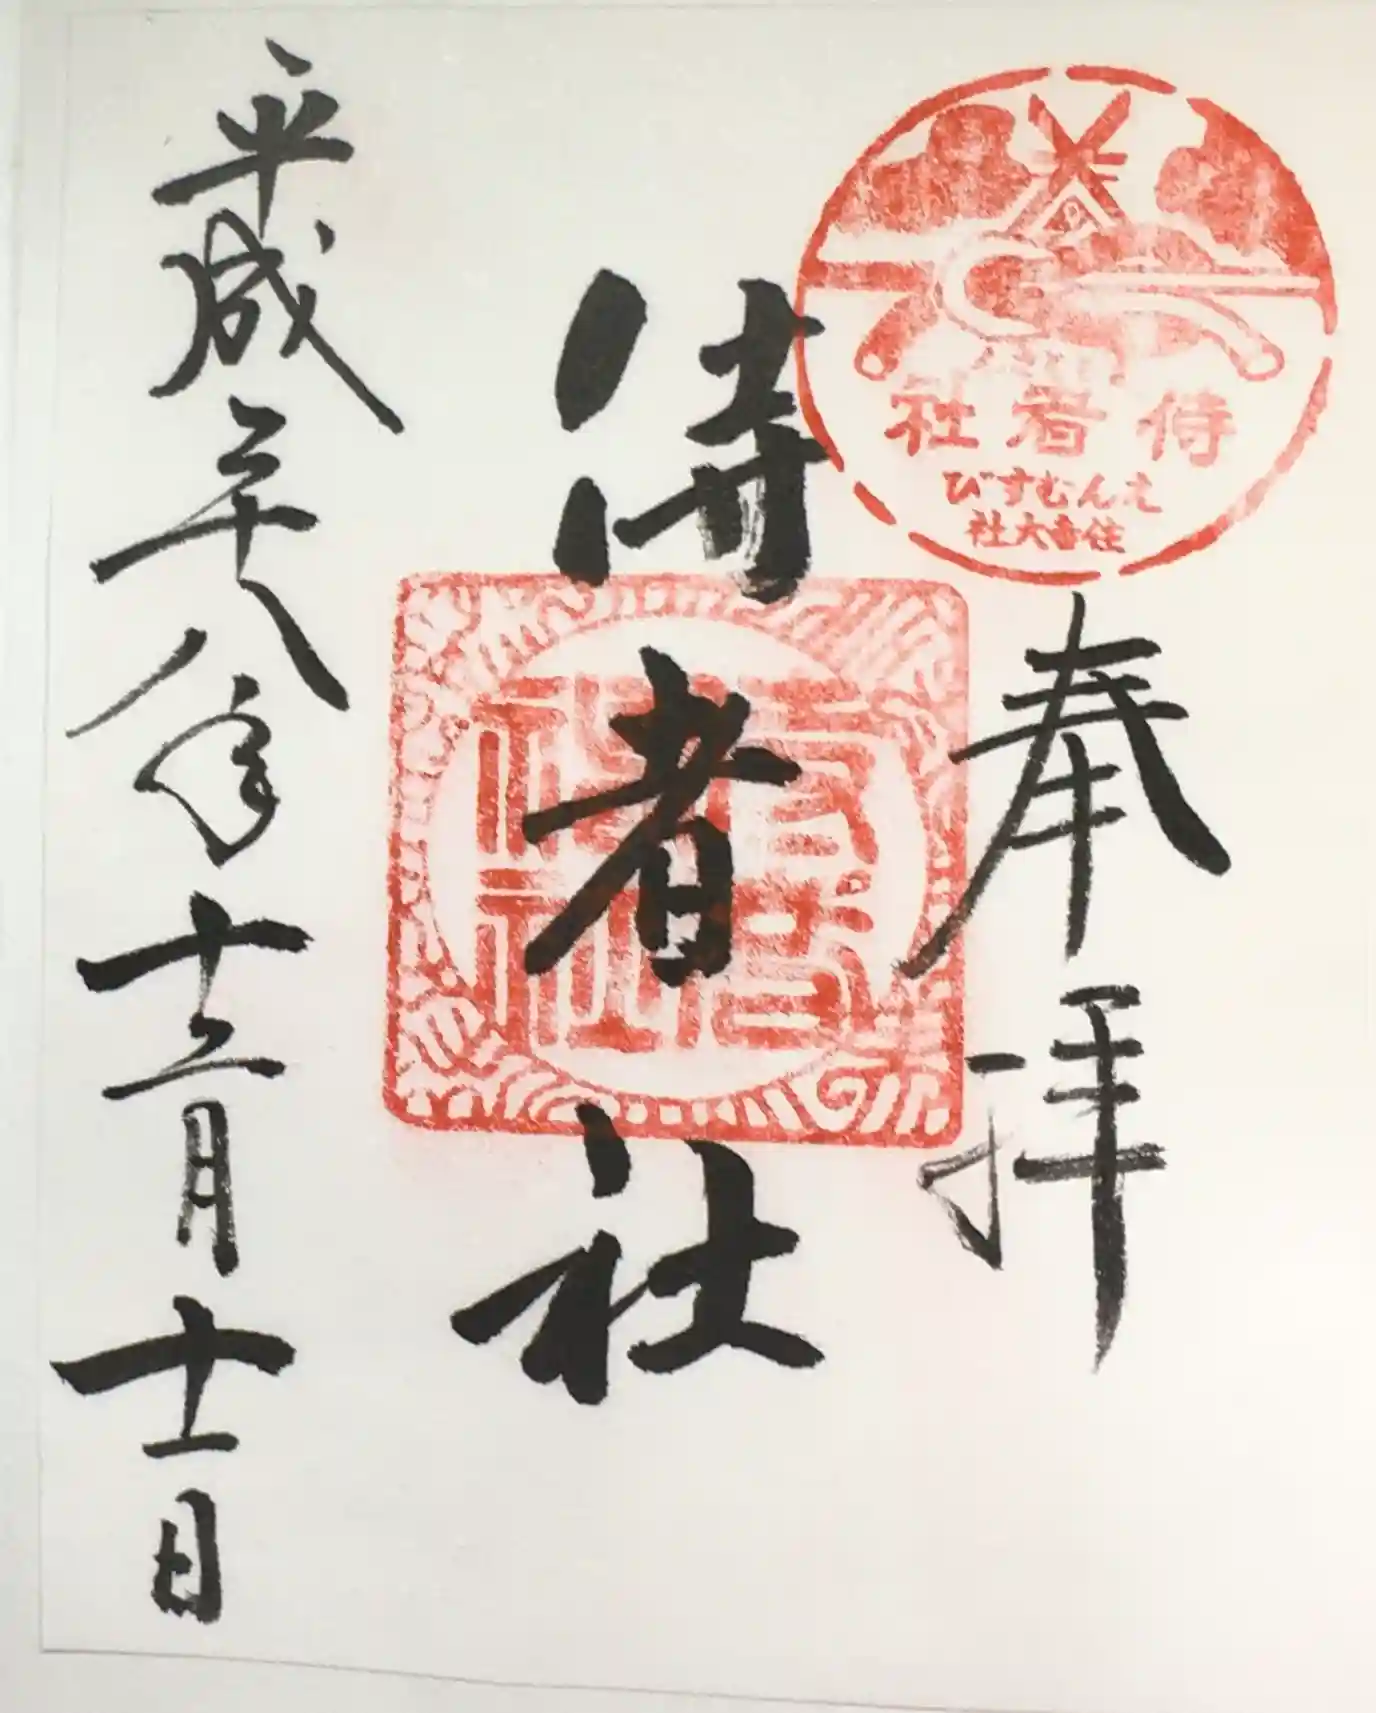 侍者社
えんむすび
住吉大社
奉拝
侍者社
平成二十八年十二月十一日